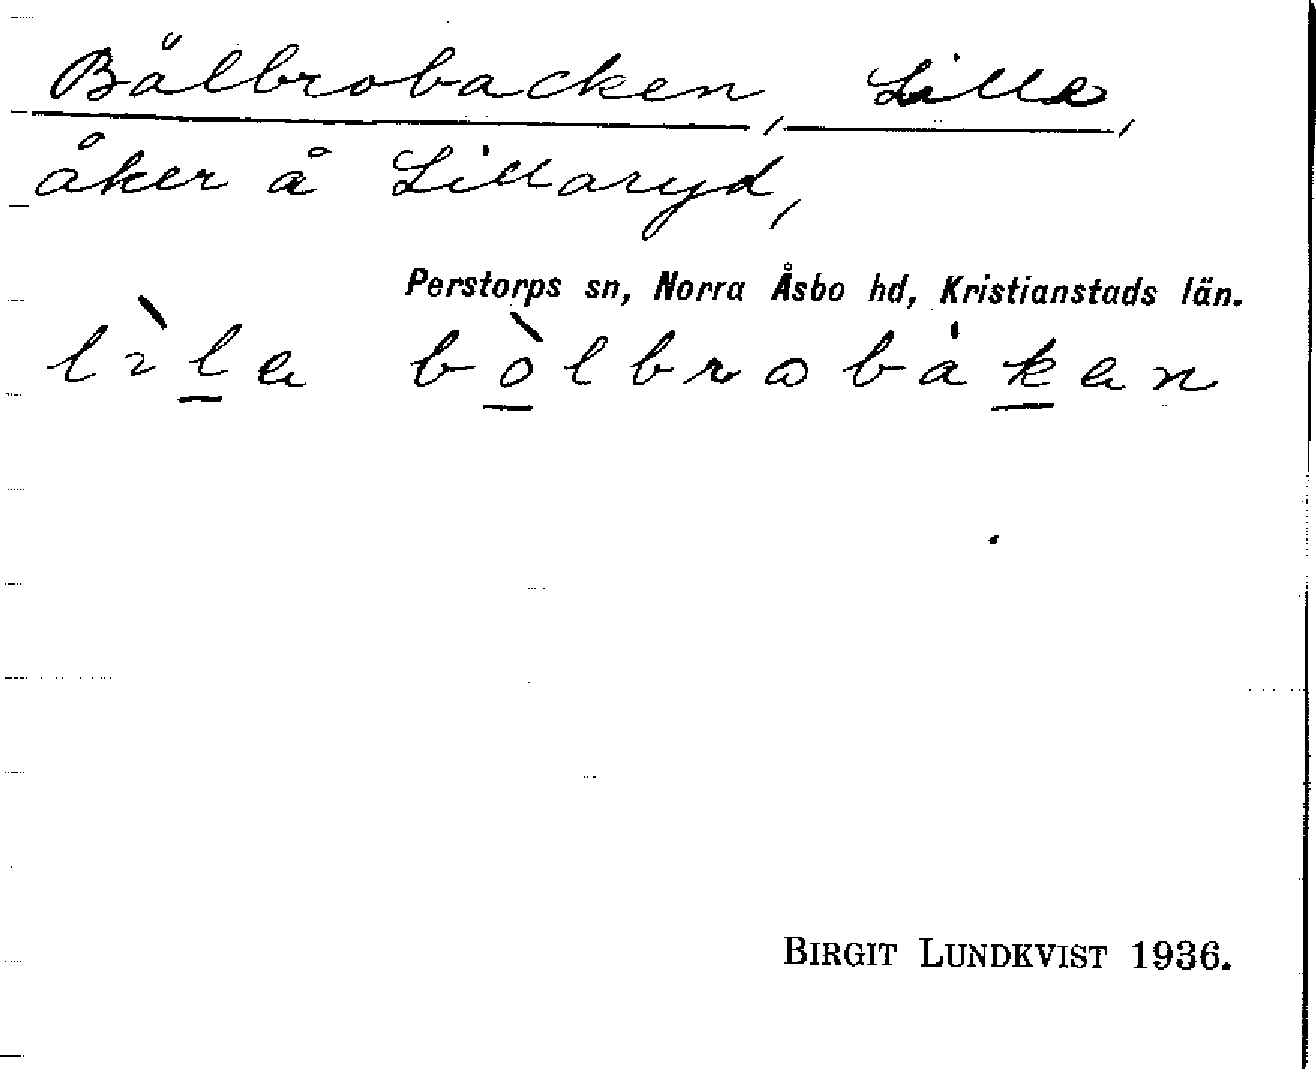 Bålbrobacken, Lille,
åker å Lillaryd,
Perstorps sn, Norra Åsbo hd, Kristianstads län.
lìla bòlbrobákan
BIRGIT LUNDKVIST 1936.